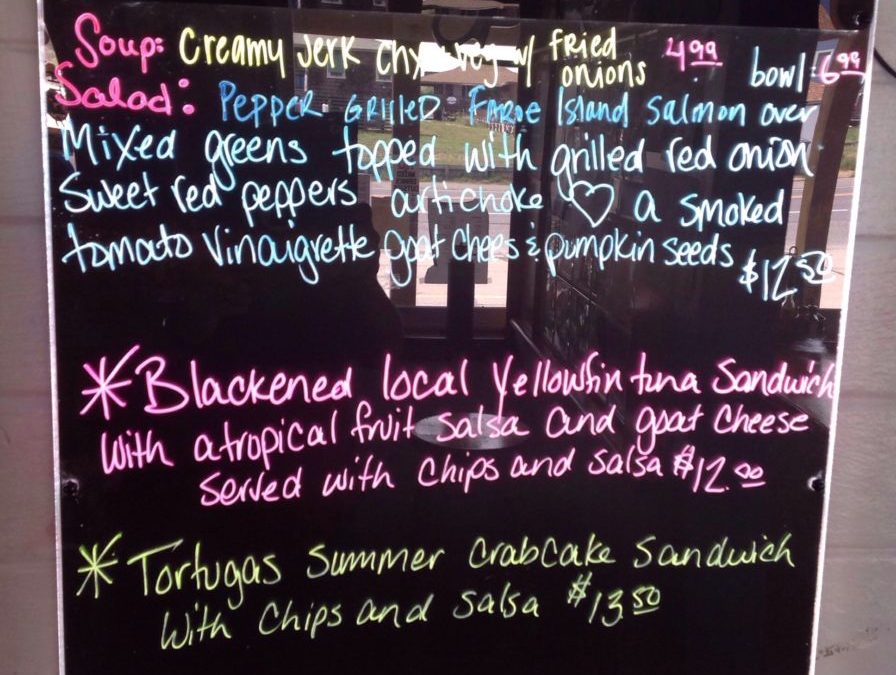 Soup: Creamy Jerk Chx veg w/ fried onions 4.99 bowl: 6.99
Salad: Pepper Grilled Faroe Island Salmon over
Mixed greens topped with grilled red onion
Sweet red peppers artichoke ♡ a smoked
tomato Vinaigrette goat chees & pumpkin seeds
$12.50
* Blackened local Yellowfin tuna Sandwich
with a tropical fruit salsa and goat cheese
served with chips and salsa $12.00
* Tortugas Summer Crabcake Sandwich
with chips and salsa $13.50